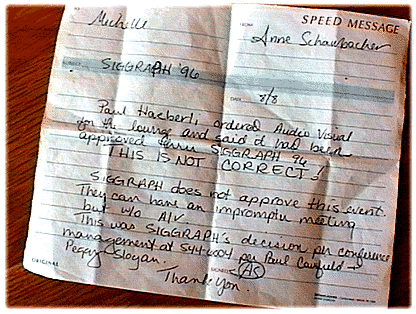 SPEED MESSAGE
TO Michelle
FROM Anne Schambacher
SUBJECT SIGGRAPH '96
DATE 8/8
Paul Haeberli ordered Audio Visual
for the lounge and said it had been
approved thru SIGGRAPH 96
THIS IS NOT CORRECT!
SIGGRAPH does not approve this event.
They can have an impromptu meeting
but w/o A/V
This was SIGGRAPH's decision per conference
management at 544-6004 per Paul +
Peggy Sloyan.
Thank you.
SIGNED AS
ORIGINAL